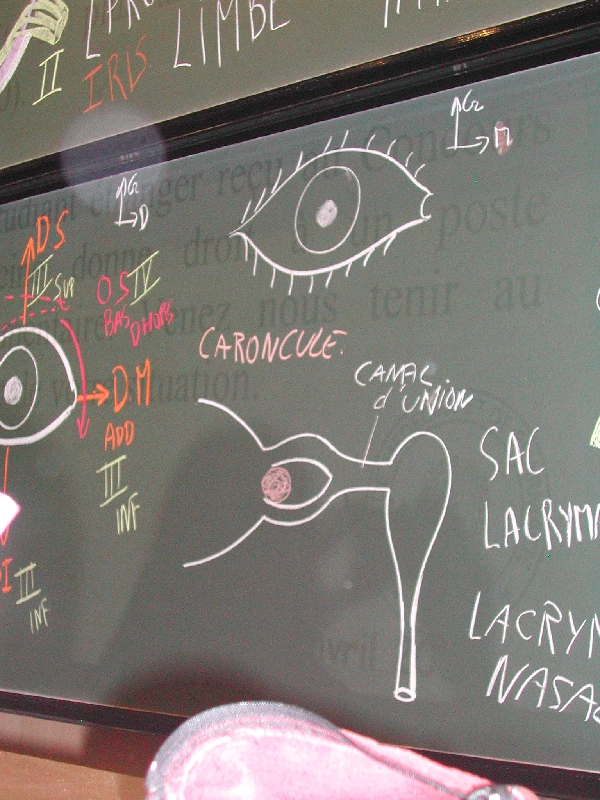 II
IRIS
LIMBE
DS
III SUP
D
OS IV
BAS DHORS
M
DM
ADD
III
INF
III
INF
CARONCULE.
CANAL
d'UNION
SAC
LACRYM
LACRYM
NASA
étudiant étranger reçu au Concours
donne droit à un poste
Venez nous tenir au
situation.